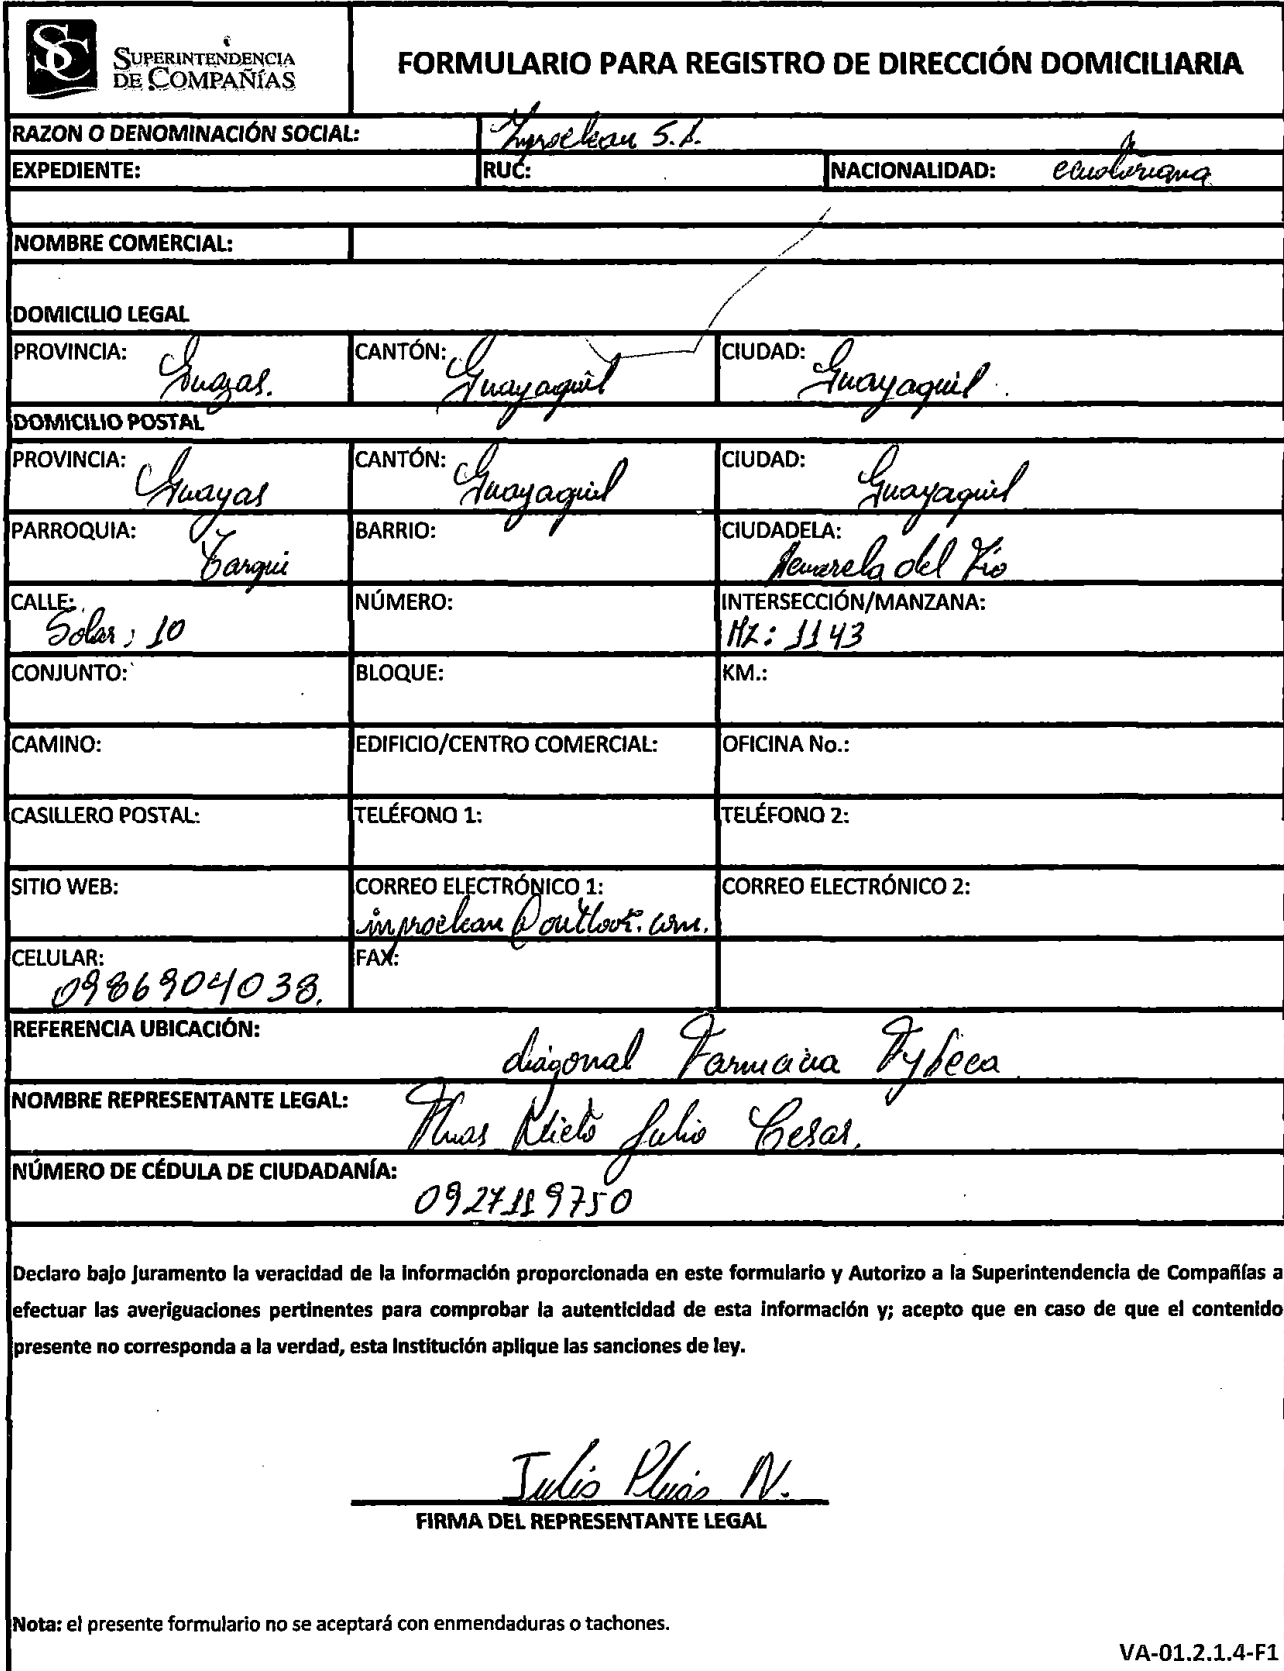 SC SUPERINTENDENCIA
DE COMPAÑÍAS
FORMULARIO PARA REGISTRO DE DIRECCIÓN DOMICILIARIA
RAZON O DENOMINACIÓN SOCIAL: Inproclean S.A.
EXPEDIENTE: RUC: NACIONALIDAD: ecuatoriana
NOMBRE COMERCIAL:
DOMICILIO LEGAL
PROVINCIA: Guayas. CANTÓN: Guayaquil CIUDAD: Guayaquil
DOMICILIO POSTAL
PROVINCIA: Guayas CANTÓN: Guayaquil CIUDAD: Guayaquil
PARROQUIA: Tarqui BARRIO: CIUDADELA: Acuarela del Río
CALLE: Solar: 10 NÚMERO: INTERSECCIÓN/MANZANA: MZ: 1143
CONJUNTO: BLOQUE: KM.:
CAMINO: EDIFICIO/CENTRO COMERCIAL: OFICINA No.:
CASILLERO POSTAL: TELÉFONO 1: TELÉFONO 2:
SITIO WEB: CORREO ELECTRÓNICO 1: inproclean@outlook.com. CORREO ELECTRÓNICO 2:
CELULAR: 0986904038. FAX:
REFERENCIA UBICACIÓN: diagonal Farmacia Fybeca
NOMBRE REPRESENTANTE LEGAL: Pluas Nieto Julio Cesar.
NÚMERO DE CÉDULA DE CIUDADANÍA: 0927119750
Declaro bajo juramento la veracidad de la información proporcionada en este formulario y Autorizo a la Superintendencia de Compañías a
efectuar las averiguaciones pertinentes para comprobar la autenticidad de esta información y; acepto que en caso de que el contenido
presente no corresponda a la verdad, esta Institución aplique las sanciones de ley.
Julio Pluas N.
FIRMA DEL REPRESENTANTE LEGAL
Nota: el presente formulario no se aceptará con enmendaduras o tachones.
VA-01.2.1.4-F1